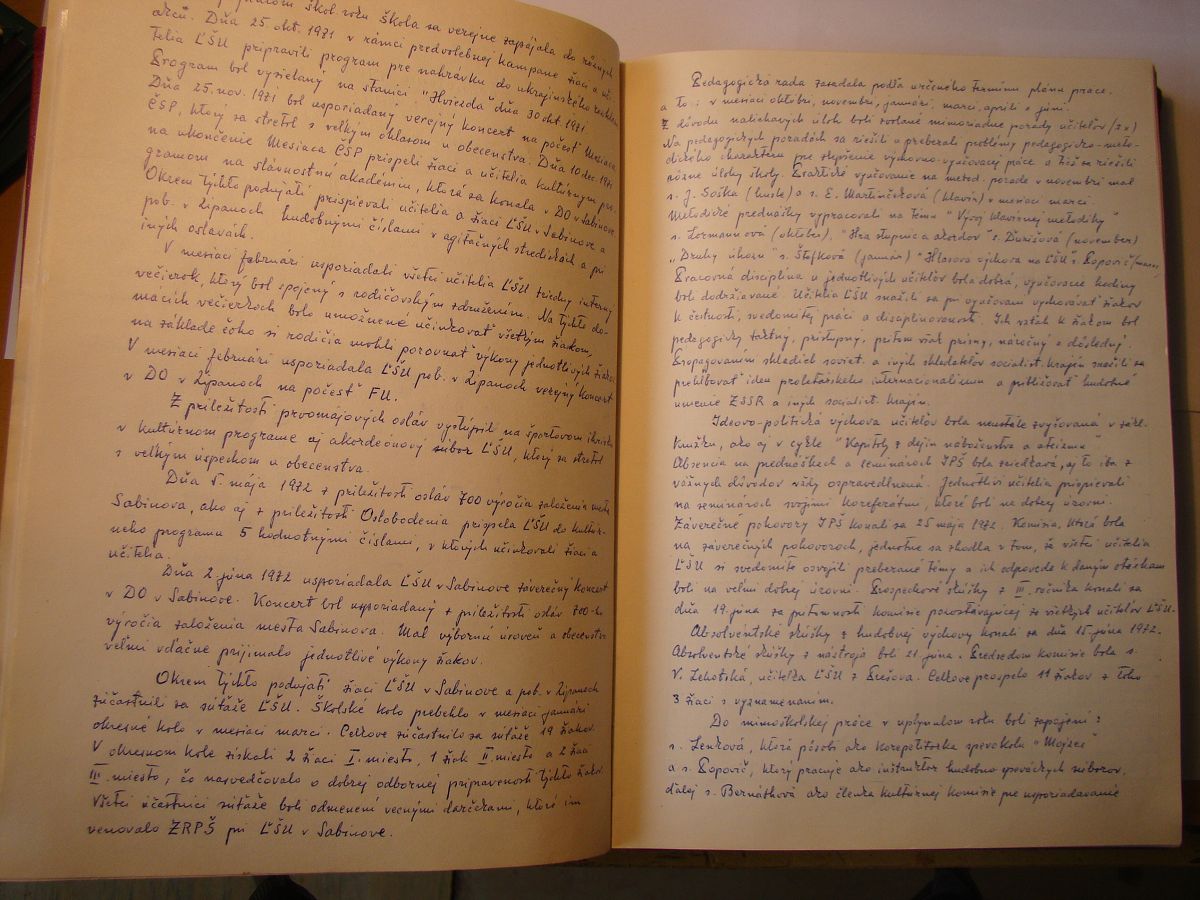 škol. roku škola sa verejne zapájala do rôznych
akcií. Dňa 25. okt. 1971 v rámci predvolebnej kampane žiaci a uči-
telia ĽŠU pripravili program pre nahrávku do ukrajinského rozhlasu
Program bol vysielaný na stanici "Hviezda" dňa 30 okt. 1971.
Dňa 25. nov. 1971 bol usporiadaný verejný koncert na počesť Mesiaca
ČSP, ktorý sa stretol s veľkým ohlasom u obecenstva. Dňa 10 dec. 1971
na ukončenie Mesiaca ČSP prispeli žiaci a učitelia kultúrnym pro-
gramom na slávnostnú akadémiu, ktorá sa konala v DO v Sabinove
Okrem týchto podujatí prispievali učitelia a žiaci ĽŠU v Sabinove a
pob. v Lipanoch hudobnými číslami v agitačných strediskách a pri
iných oslavách.
V mesiaci februári usporiadali všetci učitelia ĽŠU triedny interný
večierok, ktorý bol spojený s rodičovským združením. Na týchto do-
mácich večierkoch bolo umožnené účinkovať všetkým žiakom,
na základe čoho si rodičia mohli porovnať výkony jednotlivých žiakov
V mesiaci februári usporiadala ĽŠU pob. v Lipanoch verejný koncert
v DO v Lipanoch na počesť FU.
Z príležitosti prvomájových osláv vystúpil na športovom ihrisku
v kultúrnom programe aj akordeónový súbor ĽŠU, ktorý sa stretol
s veľkým úspechom u obecenstva.
Dňa 5. mája 1972 z príležitosti osláv 700 výročia založenia mesta
Sabinova, ako aj z príležitosti Oslobodenia prispela ĽŠU do kultúr-
neho programu 5 hodnotnými číslami, v ktorých účinkovali žiaci a
učitelia.
Dňa 2 júna 1972 usporiadala ĽŠU v Sabinove záverečný koncert
v DO v Sabinove. Koncert bol usporiadaný z príležitosti osláv 700-ho
výročia založenia mesta Sabinova. Mal výbornú úroveň a obecenstvo
veľmi vďačne prijímalo jednotlivé výkony žiakov.
Okrem týchto podujatí žiaci ĽŠU v Sabinove a pob. v Lipanoch
zúčastnili sa súťaže ĽŠU. Školské kolo prebehlo v mesiaci januári
okresné kolo v mesiaci marci. Celkove zúčastnilo sa súťaže 19 žiakov.
V okresnom kole získali 2 žiaci I. miesto, 1 žiak II. miesto a 2 žiaci
III. miesto, čo nasvedčovalo o dobrej odbornej pripravenosti týchto žiakov.
Všetci účastníci súťaže boli odmenení vecnými darčekami, ktoré im
venovalo ZRPŠ pri ĽŠU v Sabinove.
Pedagogická rada zasadala podľa určeného termínu plánu práce.
a to: v mesiaci októbri, novembri, januári, marci, apríli a júni.
Z dôvodu naliehavých úloh boli zvolané mimoriadne porady učiteľov (2x)
Na pedagogických poradách sa riešili a preberali problémy pedagogicko-meto-
dického charakteru pre zlepšenie výchovno-vyučovacej práce a tiež sa riešili
rôzne úlohy školy. Praktické vyučovanie na metod. porade v novembri mal
s. J. Soška (husle) a s. E. Martinčeková (klavír) v mesiaci marci.
Metodické prednášky vypracovali na tému "Vývoj klavírnej metodiky"
s. Lormannová (október), "Hra stupníc a akordov" s. Ďurišová (november)
"Druhy úhozu" s. Štofková (január) "Hlasová výchova na ĽŠU" s. Popovič (marec)
Pracovná disciplína u jednotlivých učiteľov bola dobrá, vyučovacie hodiny
boli dodržiavané. Učitelia ĽŠU snažili sa pri vyučovaní vychovávať žiakov
k čestnosti, svedomitej práci a disciplinovanosti. Ich vzťah k žiakom bol
pedagogicky taktný, prístupný, pritom však prísny, náročný a dôsledný.
Propagovaním skladieb soviet. a iných skladateľov socialist. krajín snažili sa
prehlbovať ideu proletárskeho internacionalizmu a približovať hudobné
umenie ZSSR a iných socialist. krajín.
Ideovo-politická výchova učiteľov bola neustále zvyšovaná v zákl.
krúžku, ako aj v cykle "Kapitoly z dejín náboženstva a ateizmu".
Absencia na prednáškach a seminároch IPŠ bola zriedkavá, aj to iba z
vážnych dôvodov vždy ospravedlnená. Jednotliví učitelia prispievali
na seminároch svojimi koreferátmi, ktoré boli na dobrej úrovni.
Záverečné pohovory IPŠ konali sa 25 mája 1972. Komisia, ktorá bola
na záverečných pohovoroch, jednotne sa zhodla v tom, že všetci učitelia
ĽŠU si svedomite osvojili preberané témy a ich odpovede k daným otázkam
boli na veľmi dobrej úrovni. Prospechové skúšky z III. ročníka konali sa
dňa 19. júna za prítomnosti komisie pozostávajúcej zo všetkých učiteľov ĽŠU.
Absolventské skúšky z hudobnej výchovy konali sa dňa 15. júna 1972.
Absolventské skúšky z nástroja boli 21 júna. Predsedom komisie bola s.
V. Lehotská, učiteľka ĽŠU z Prešova. Celkove prospelo 11 žiakov z toho
3 žiaci s vyznamenaním.
Do mimoškolskej práce v uplynulom roku boli zapojení:
s. Lenková, ktorá pôsobí ako korepetítorka spevokolu "Mojzes"
a s. Popovič, ktorý pracuje ako inštruktor hudobno spováckych súborov.
ďalej s. Bernátková ako členka kultúrnej komisie pre usporiadavanie